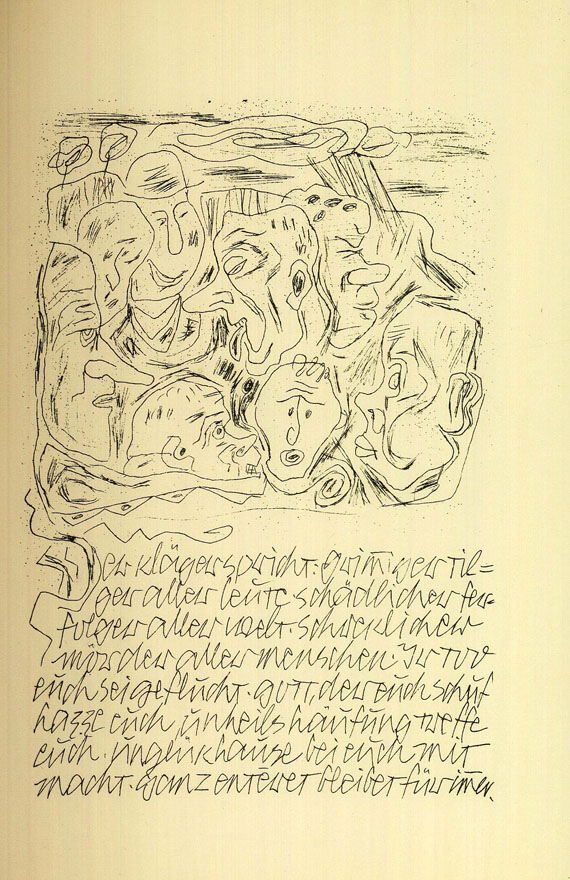 Der kläger spricht. Grim̄iger til=
ger aller leute. schädlicher fer=
folger aller welt. schrecklicher
mörder aller menschen. Ir tod
euch sei geflucht. gott, der euch schuf
hazze euch, unheils häufung treffe
euch. unglük hause bei euch mit
macht. ganz enteret bleibet für im̄er.